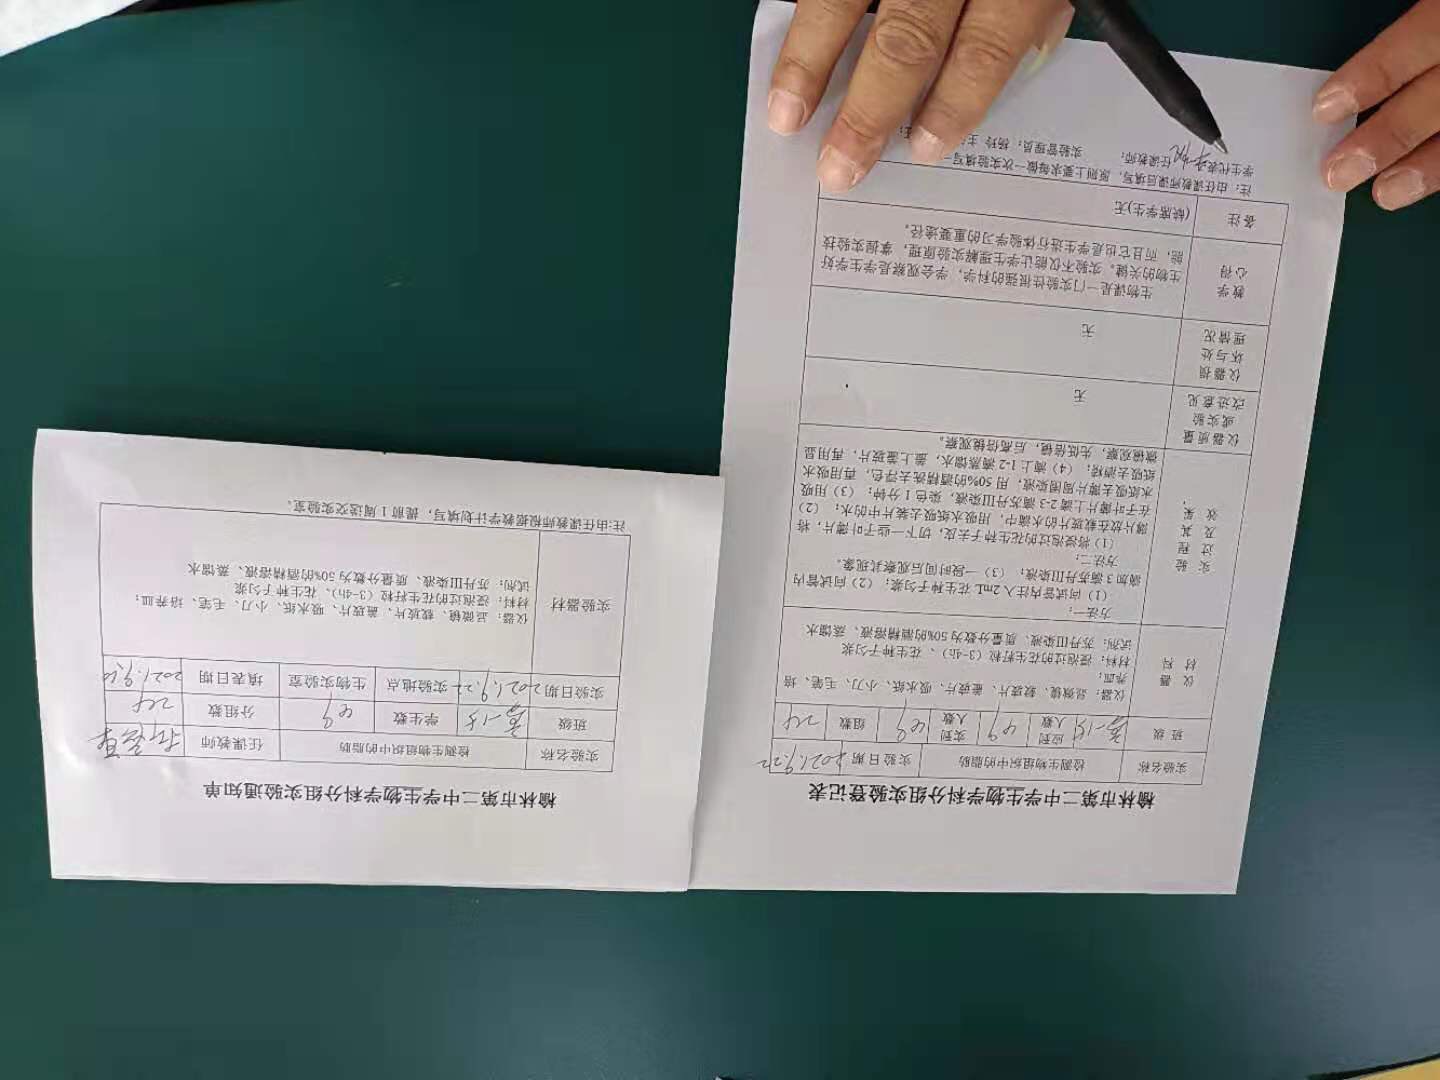 榆林市第二中学生物学科分组实验通知单
实验名称 检测生物组织中的脂肪 任课教师
班级 高一15 学生数 49 分组数 24
实验日期 2021.9.22 实验地点 生物实验室 填表日期 2021.9.10
实验器材
仪器：显微镜、载玻片、盖玻片、吸水纸、小刀、毛笔、培养皿；
材料：浸泡过的花生籽粒（3-4h）、花生种子匀浆
试剂：苏丹III染液、质量分数为50%的酒精溶液、蒸馏水
注:由任课教师根据教学计划填写，提前1周送交实验室。
榆林市第二中学生物学科分组实验登记表
实验名称 检测生物组织中的脂肪 实验日期 2021.9.22
班级 高一15 应到人数 49 实到人数 49 组数 24
仪器材料
仪器：显微镜、载玻片、盖玻片、吸水纸、小刀、毛笔、培
养皿；
材料：浸泡过的花生籽粒（3-4h）、花生种子匀浆
试剂：苏丹III染液、质量分数为50%的酒精溶液、蒸馏水
实验过程及其效果：
方法一：
（1）向试管内注入2mL花生种子匀浆；（2）向试管内
滴加3滴苏丹III染液；（3）一段时间后观察其现象。
方法二：
（1）将浸泡过的花生种子去皮，切下一些子叶薄片，将
薄片放在载玻片的水滴中，用吸水纸吸去装片中的水；（2）
在子叶薄片上滴2-3滴苏丹III染液，染色1分钟；（3）用吸
水纸吸去薄片周围染液，用50%的酒精洗去浮色，再用吸水
纸吸去酒精；（4）滴上1-2滴蒸馏水，盖上盖玻片，再用显
微镜观察，先低倍镜，后高倍镜观察。
仪器质量或实验改进意见 无
仪器损坏与处理情况 无
教学心得
生物课是一门实验性很强的科学，学会观察是学生学好
生物的关键。实验不仅能让学生理解实验原理，掌握实验技
能，而且它也是学生进行体验学习的重要途径。
备注 (缺席学生)无
注：由任课教师课后填写，原则上要求每做一次实验填写一
学生代表 任课教师： 实验管理员：杨玲